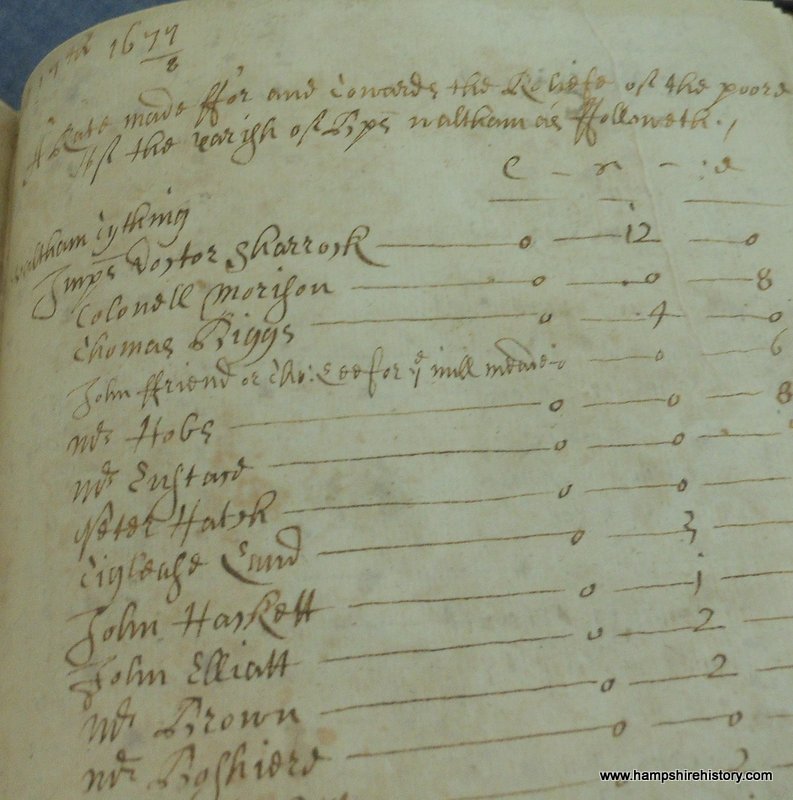 17th 1677
8
A Rate made ffor and towards the Reliefe off the poore
off the parish off Bps waltham as ffolloweth.
l - s - d
waltham Tything
Imps Doctor Sharrock — 0 — 12 — 0
Colonell Morison — 0 — 0 — 8
Thomas Biggs — 0 — 4 — 0
John ffriend or Tho: Lee for ye mill meade — 0 — 0 — 6
Mr Hobs — 0 — 0 — 8
Mr Eustace — 0 — 0 —
Peter Hatch — 0 — 0
Land — 0 — 3
John Haskett — 0 — 1
John Elliatt — 0 — 2
Mr Brown — 0 — 2
Mr Boshiere — 0 — 0
www.hampshirehistory.com